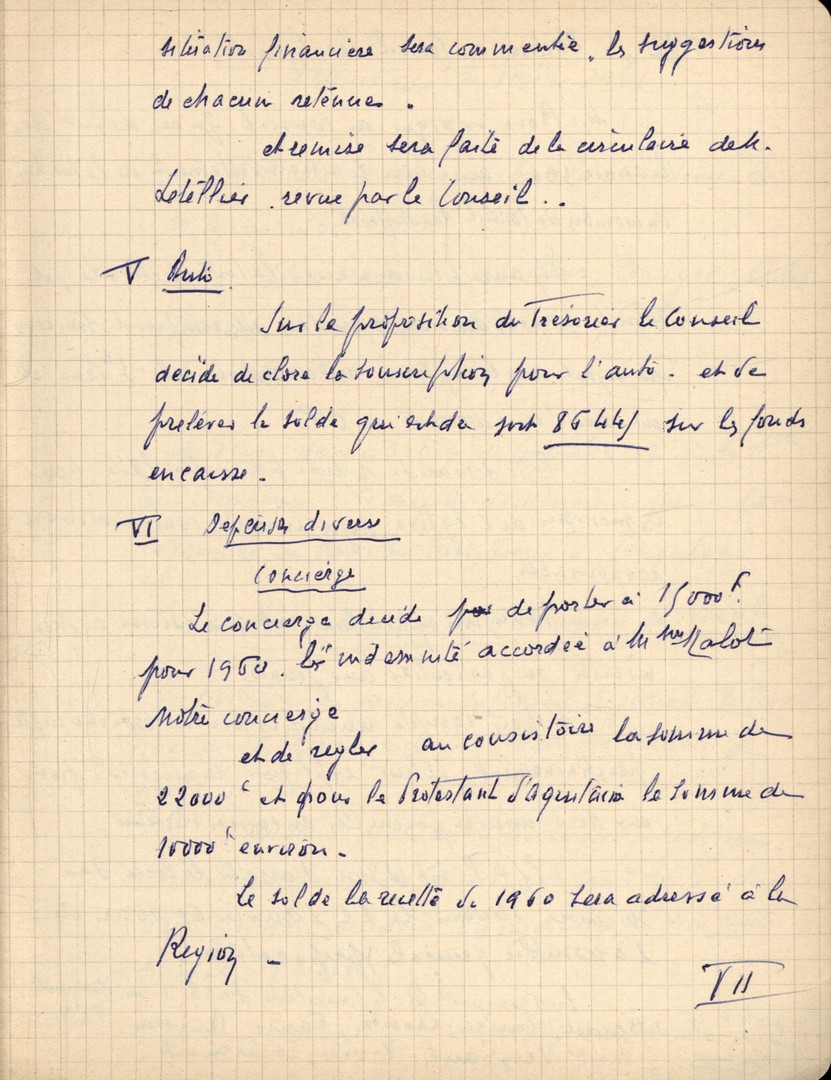 situation financière sera commentée, les suggestions
de chacun retenues.
et remise sera faite de la circulaire de M.
Letellier revue par le Conseil..
V Auto
Sur la proposition du Trésorier le Conseil
décide de clore la souscription pour l'auto. et de
prélever le solde qui est de soit sur les fonds
en caisse.
VI Dépenses diverses
Concierge
Le concierge decide de porter à 15000 F.
pour 1960. l'indemnité accordée à Mme Malot
Notre concierge
et de regler au consistoire la somme de
22000 F et pour le Protestant d'Aquitaine la somme de
10000 F environ.
Le solde la recette de 1960 sera adressé à la
Region -
VII